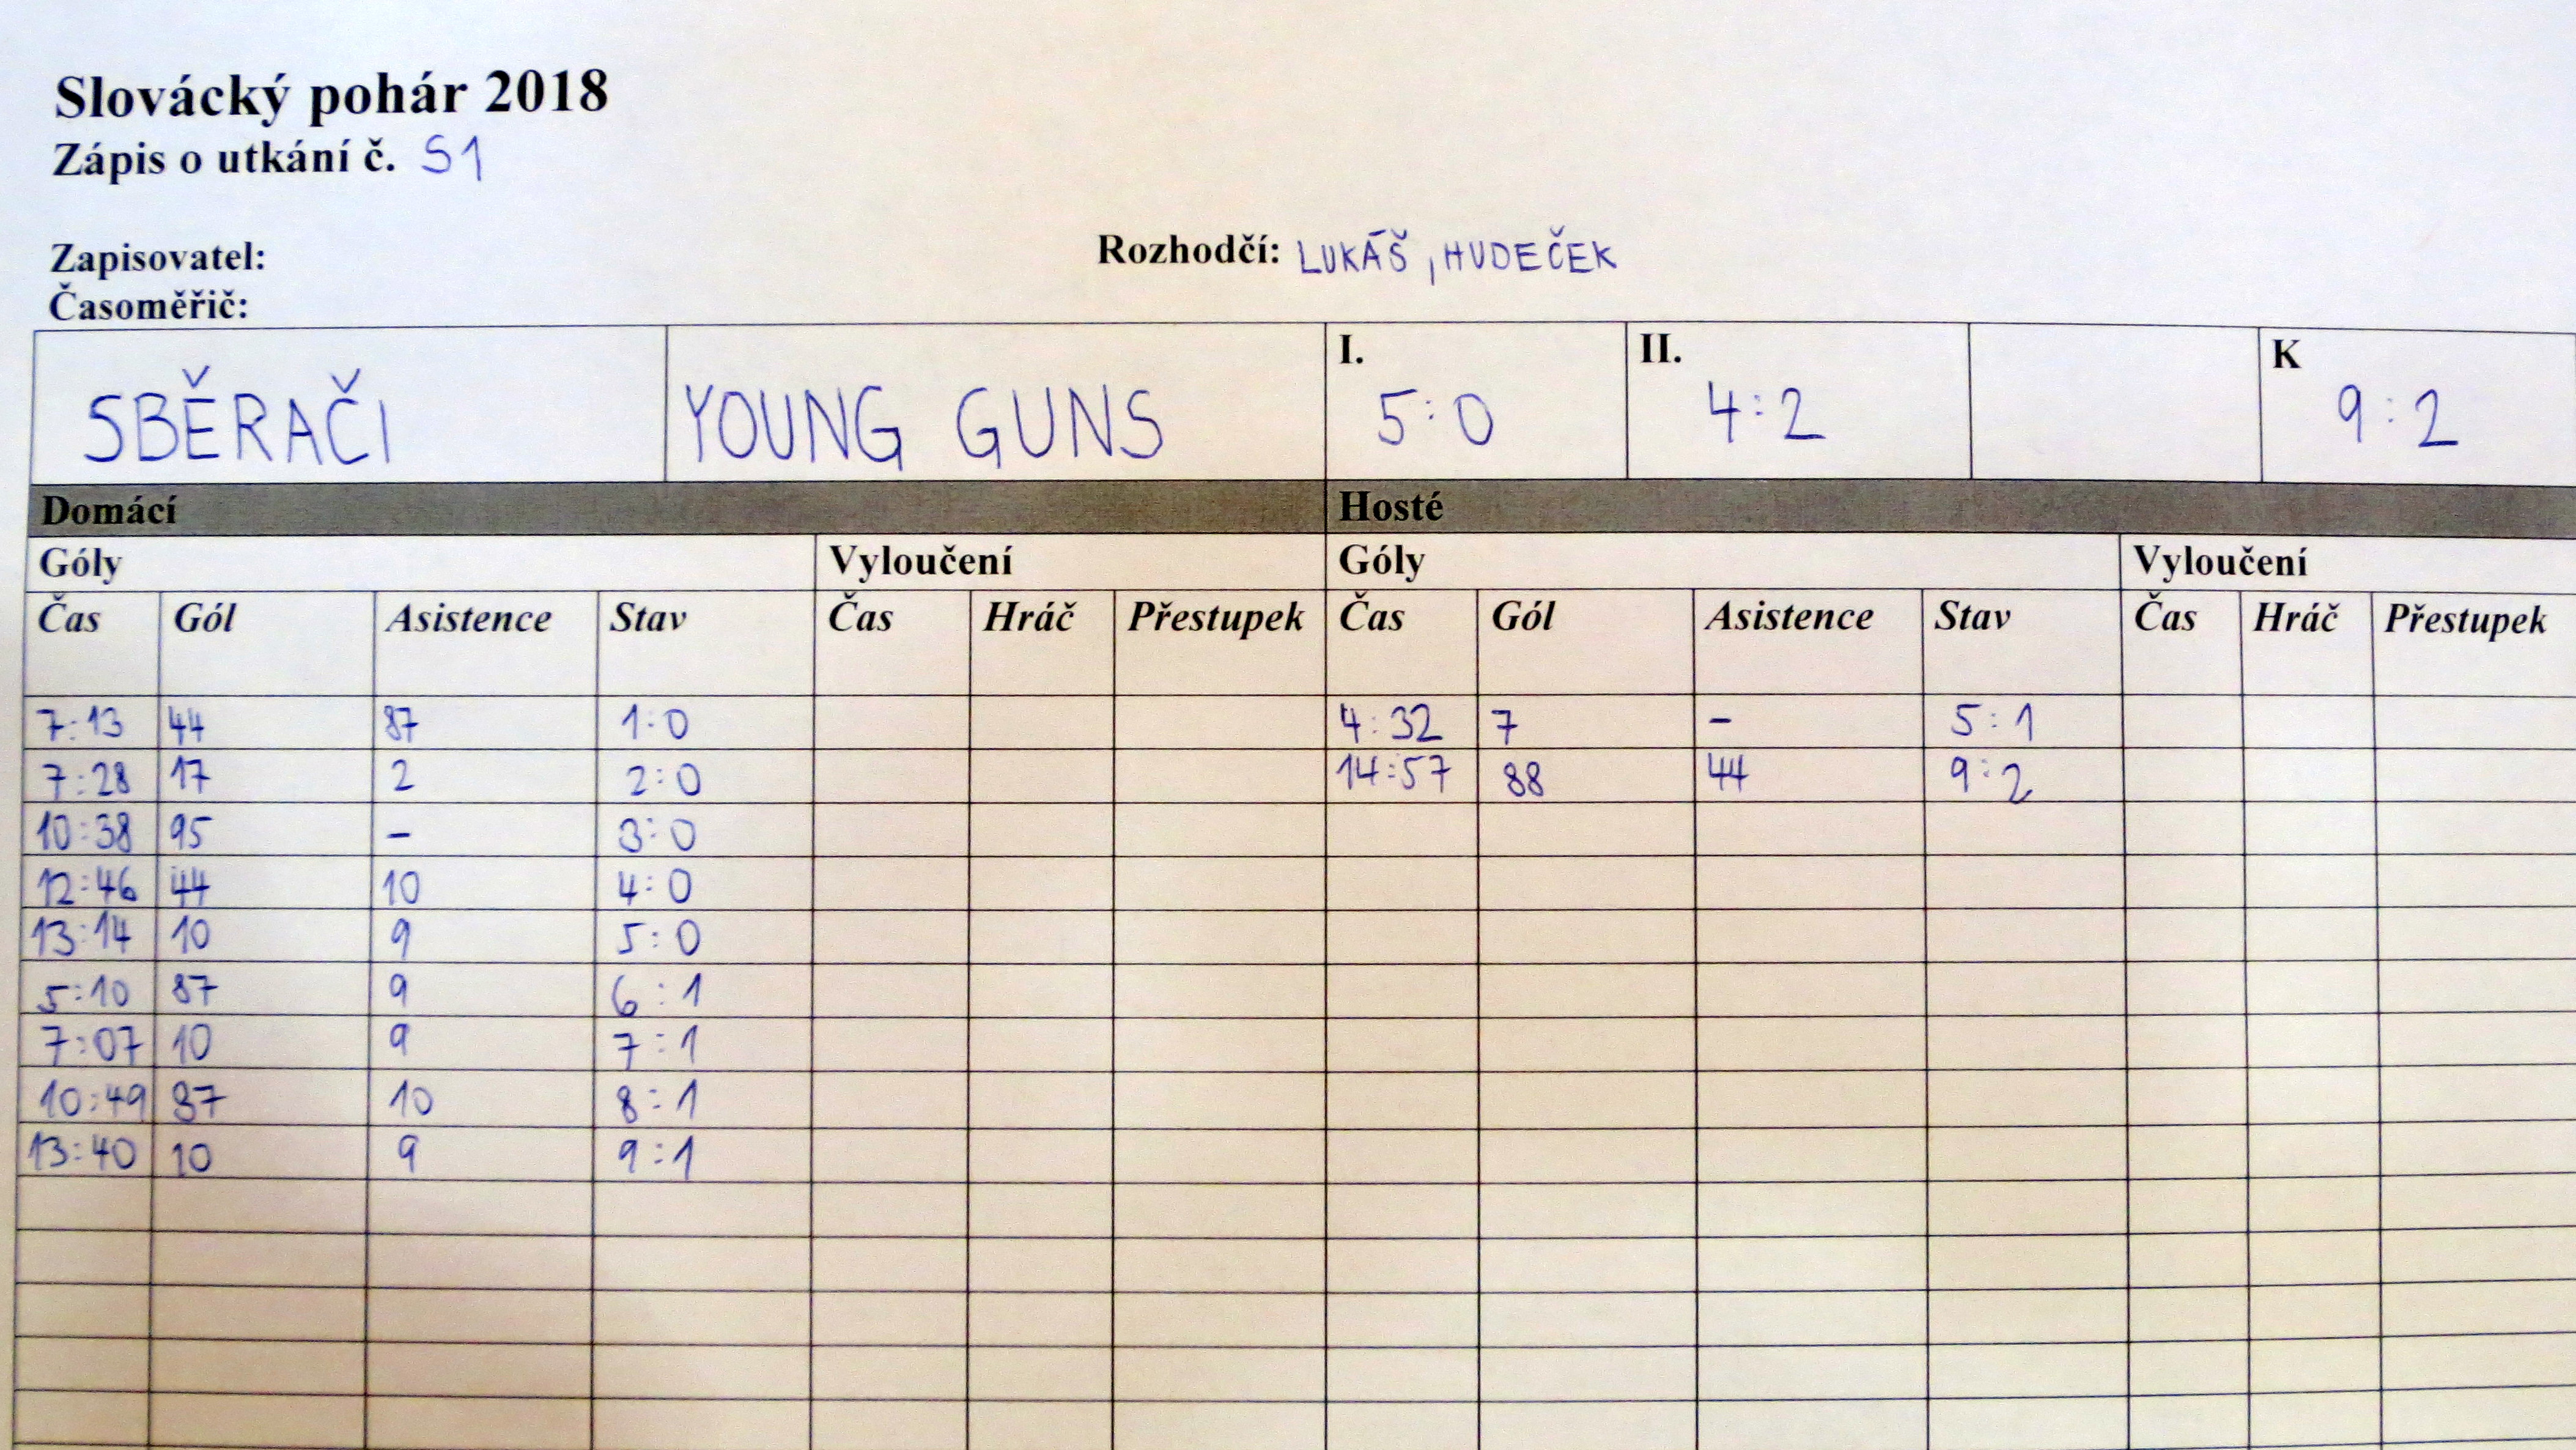 Slovácký pohár 2018
Zápis o utkání č. S1
Zapisovatel: Rozhodčí: LUKÁŠ, HUDEČEK
Časoměřič:
SBĚRAČI YOUNG GUNS I. 5:0 II. 4:2 K 9:2
Domácí Hosté
Góly Vyloučení Góly Vyloučení
Čas Gól Asistence Stav Čas Hráč Přestupek Čas Gól Asistence Stav Čas Hráč Přestupek
7:13 44 87 1:0 4:32 7 - 5:1
7:28 17 2 2:0 14:57 88 44 9:2
10:38 95 - 3:0
12:46 44 10 4:0
13:14 10 9 5:0
5:10 87 9 6:1
7:07 10 9 7:1
10:49 87 10 8:1
13:40 10 9 9:1